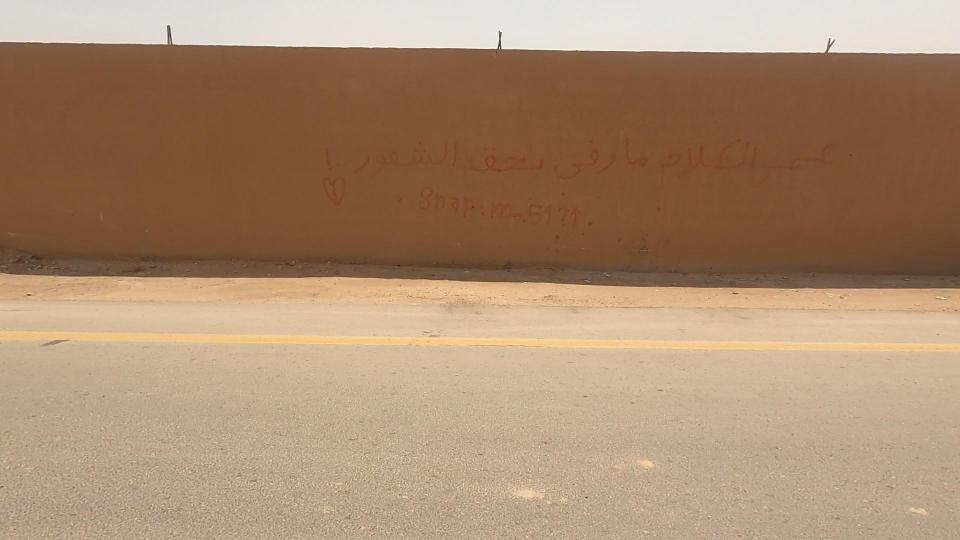 عمر الكلام ماوفى بحق الشعور ..!
Snap:m_5171.